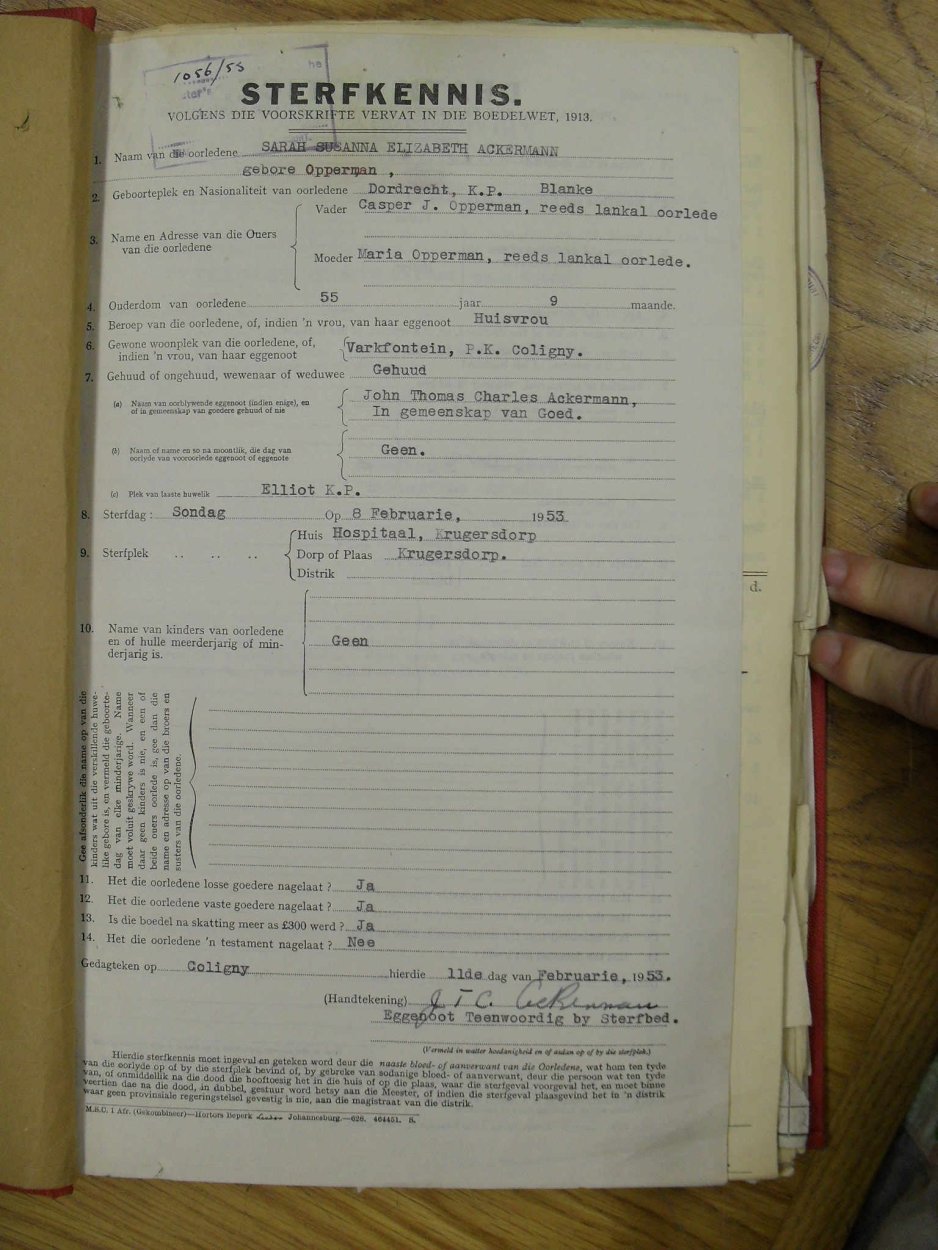 1056/53
STERFKENNIS.
VOLGENS DIE VOORSKRIFTE VERVAT IN DIE BOEDELWET, 1913.
1. Naam van die oorledene SARAH SUSANNA ELIZABETH ACKERMANN
gebore Opperman ,
2. Geboorteplek en Nasionaliteit van oorledene Dordrecht, K.P. Blanke
3. Name en Adresse van die Ouers van die oorledene
Vader Casper J. Opperman, reeds lankal oorlede
Moeder Maria Opperman, reeds lankal oorlede.
4. Ouderdom van oorledene 55 jaar 9 maande.
5. Beroep van die oorledene, of, indien 'n vrou, van haar eggenoot Huisvrou
6. Gewone woonplek van die oorledene, of,
indien 'n vrou, van haar eggenoot Varkfontein, P.K. Coligny.
7. Gehuud of ongehuud, wewenaar of weduwee Gehuud
(a) Naam van oorblywende eggenoot (indien enige), en
of in gemeenskap van goedere gehuud of nie
John Thomas Charles Ackermann,
In gemeenskap van Goed.
(b) Naam of name en so na moontlik, die dag van
oorlyde van vooroorlede eggenoot of eggenote
Geen.
(c) Plek van laaste huwelik Elliot K.P.
8. Sterfdag : Sondag Op 8 Februarie, 1953
9. Sterfplek .. .. ..
Huis Hospitaal, Krugersdorp
Dorp of Plaas Krugersdorp.
Distrik
d.
10. Name van kinders van oorledene
en of hulle meerderjarig of min-
derjarig is.
Geen
Gee afsonderlik die name op van die
kinders wat uit die verskillende huwe-
like gebore is, en vermeld die geboorte-
dag van elke minderjarige. Name
moet voluit geskrywe word. Wanneer
daar geen kinders is nie, en een of
beide ouers oorlede is, gee dan die
name en adresse op van die broers en
susters van die oorledene.
11. Het die oorledene losse goedere nagelaat ? Ja
12. Het die oorledene vaste goedere nagelaat ? Ja
13. Is die boedel na skatting meer as £300 werd ? Ja
14. Het die oorledene 'n testament nagelaat ? Nee
Gedagteken op Coligny hierdie 11de dag van Februarie, 1953.
(Handtekening) J T C. Ackermann
Eggenoot Teenwoordig by Sterfbed.
(Vermeld in watter hoedanigheid en of aldan op of by die sterfplek.)
Hierdie sterfkennis moet ingevul en geteken word deur die naaste bloed- of aanverwant van die Oorledene, wat hom ten tyde
van die oorlyde op of by die sterfplek bevind of, by gebreke van sodanige bloed- of aanverwant, deur die persoon wat ten tyde
van, of onmiddellik na die dood die hooftoesig het in die huis of op die plaas, waar die sterfgeval voorgeval het, en moet binne
veertien dae na die dood, in dubbel, gestuur word hetsy aan die Meester, of indien die sterfgeval plaasgevind het in 'n distrik
waar geen provinsiale regeringstelsel gevestig is nie, aan die magistraat van die distrik.
M.S.C. 1 Afr. (Gekombineer)—Hortors Beperk Johannesburg.—626. 464451. S.